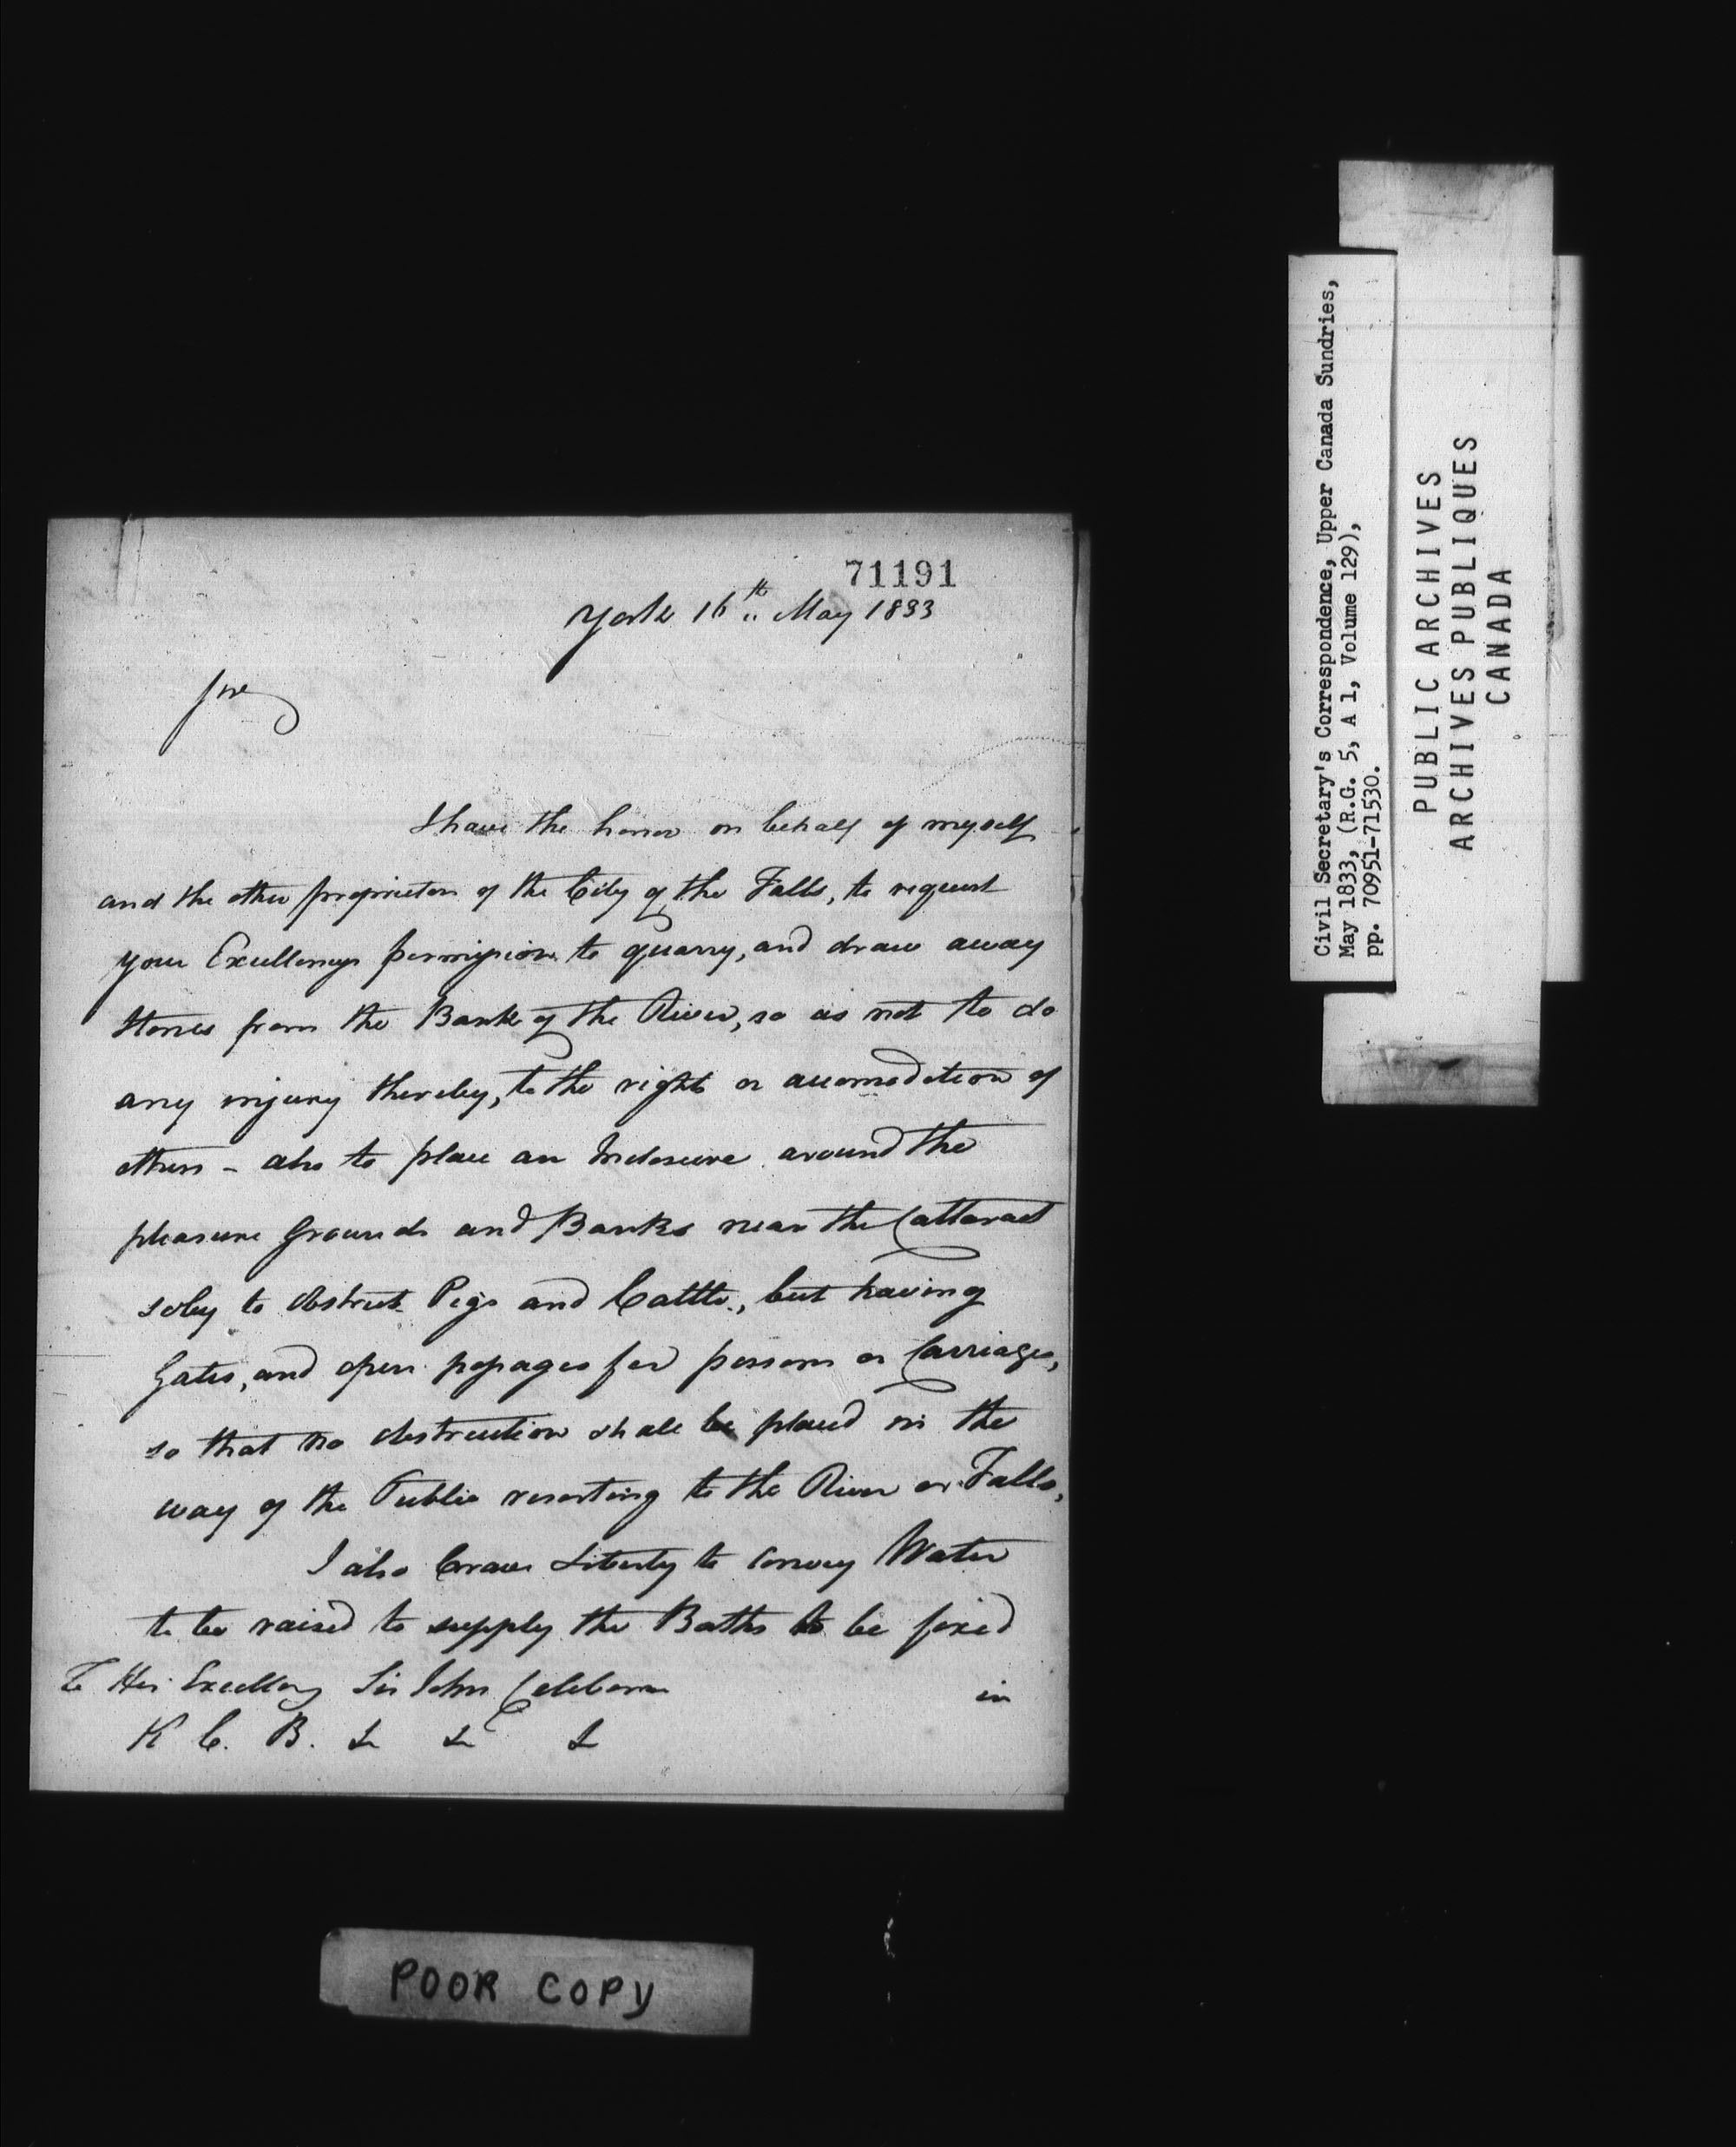 71191
York 16th May 1833
Sir
I have the honor on behalf of myself
and the other proprietors of the City of the Falls, to request
your Excellencys permission to quarry, and draw away
Stones from the Bank of the River, so as not to do
any injury thereby, to the right or accomodation of
others - also to place an Inclosure around the
pleasure Grounds and Banks near the Cattaract
soley to obstruct Pigs and Cattle, but having
Gates, and open passages for persons or Carriages,
so that no obstruction shall be placed in the
way of the Public resorting to the River or Falls,
I also Crave Liberty to convey Water
to be raised to supply the Baths to be fixed
in
To His Excellency Sir John Colborne
K C. B. & & &
Civil Secretary's Correspondence, Upper Canada Sundries,
May 1833, (R.G. 5, A 1, Volume 129),
pp. 70951-71530.
PUBLIC ARCHIVES
ARCHIVES PUBLIQUES
CANADA
POOR COPY